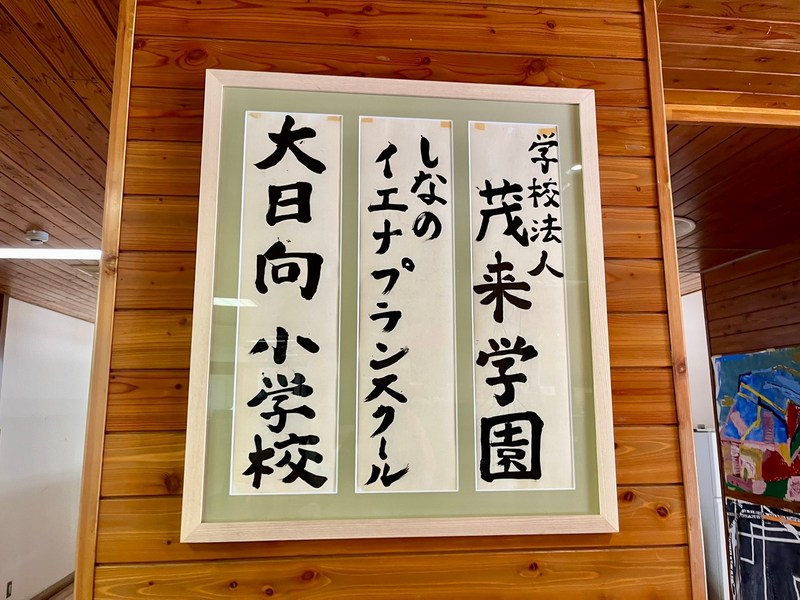 学校法人
茂来学園
しなの
イエナプランスクール
大日向小学校